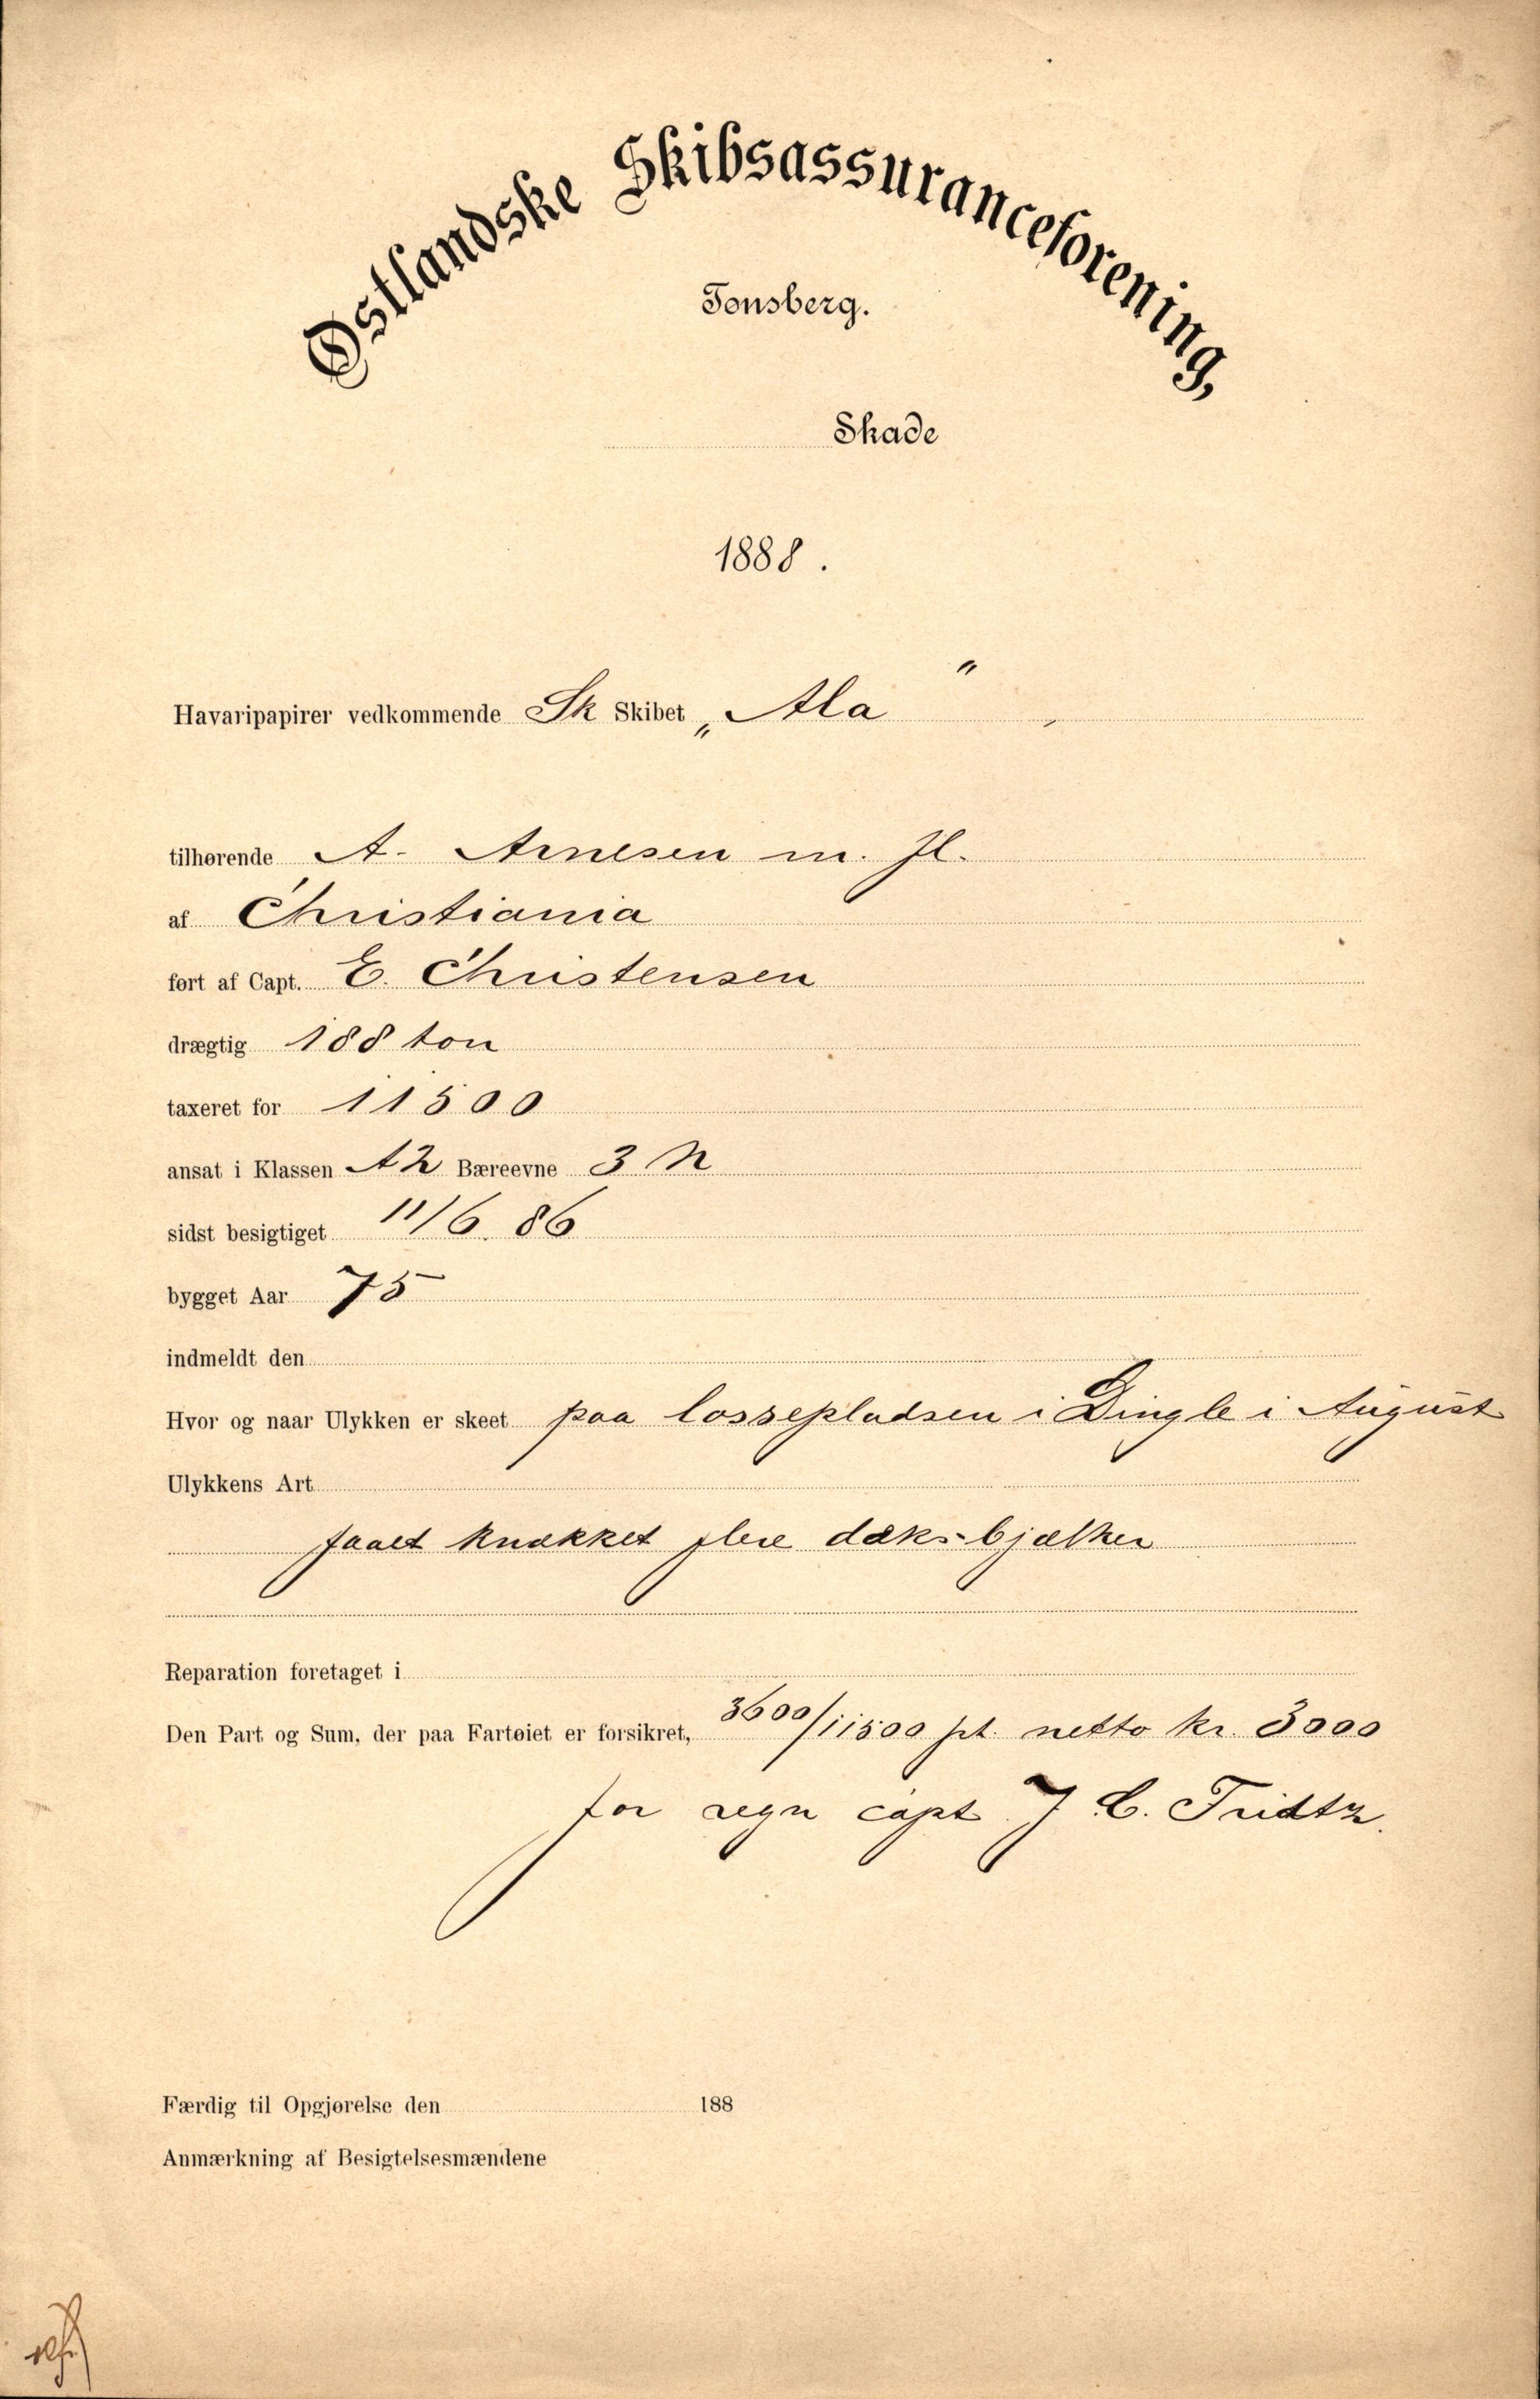 Østlandske Skibsassuranceforening,
Tønsberg.
Skade
1888.
Havaripapirer vedkommende Sk Skibet „Ala"
tilhørende A. Arnesen m. fl.
af Christiania
ført af Capt. E. Christensen
drægtig 188 ton
taxeret for 11500
ansat i Klassen A2 Bæreevne 3 N
sidst besigtiget 11/6. 86
bygget Aar 75
indmeldt den
Hvor og naar Ulykken er skeet paa lossepladsen i Dingle i August
Ulykkens Art
faaet knækket flere dæksbjælker
Reparation foretaget i
Den Part og Sum, der paa Fartøiet er forsikret, 3600/11500 pt. netto kr. 3000
for regn capt J C.
Færdig til Opgjørelse den 188
Anmærkning af Besigtelsesmændene